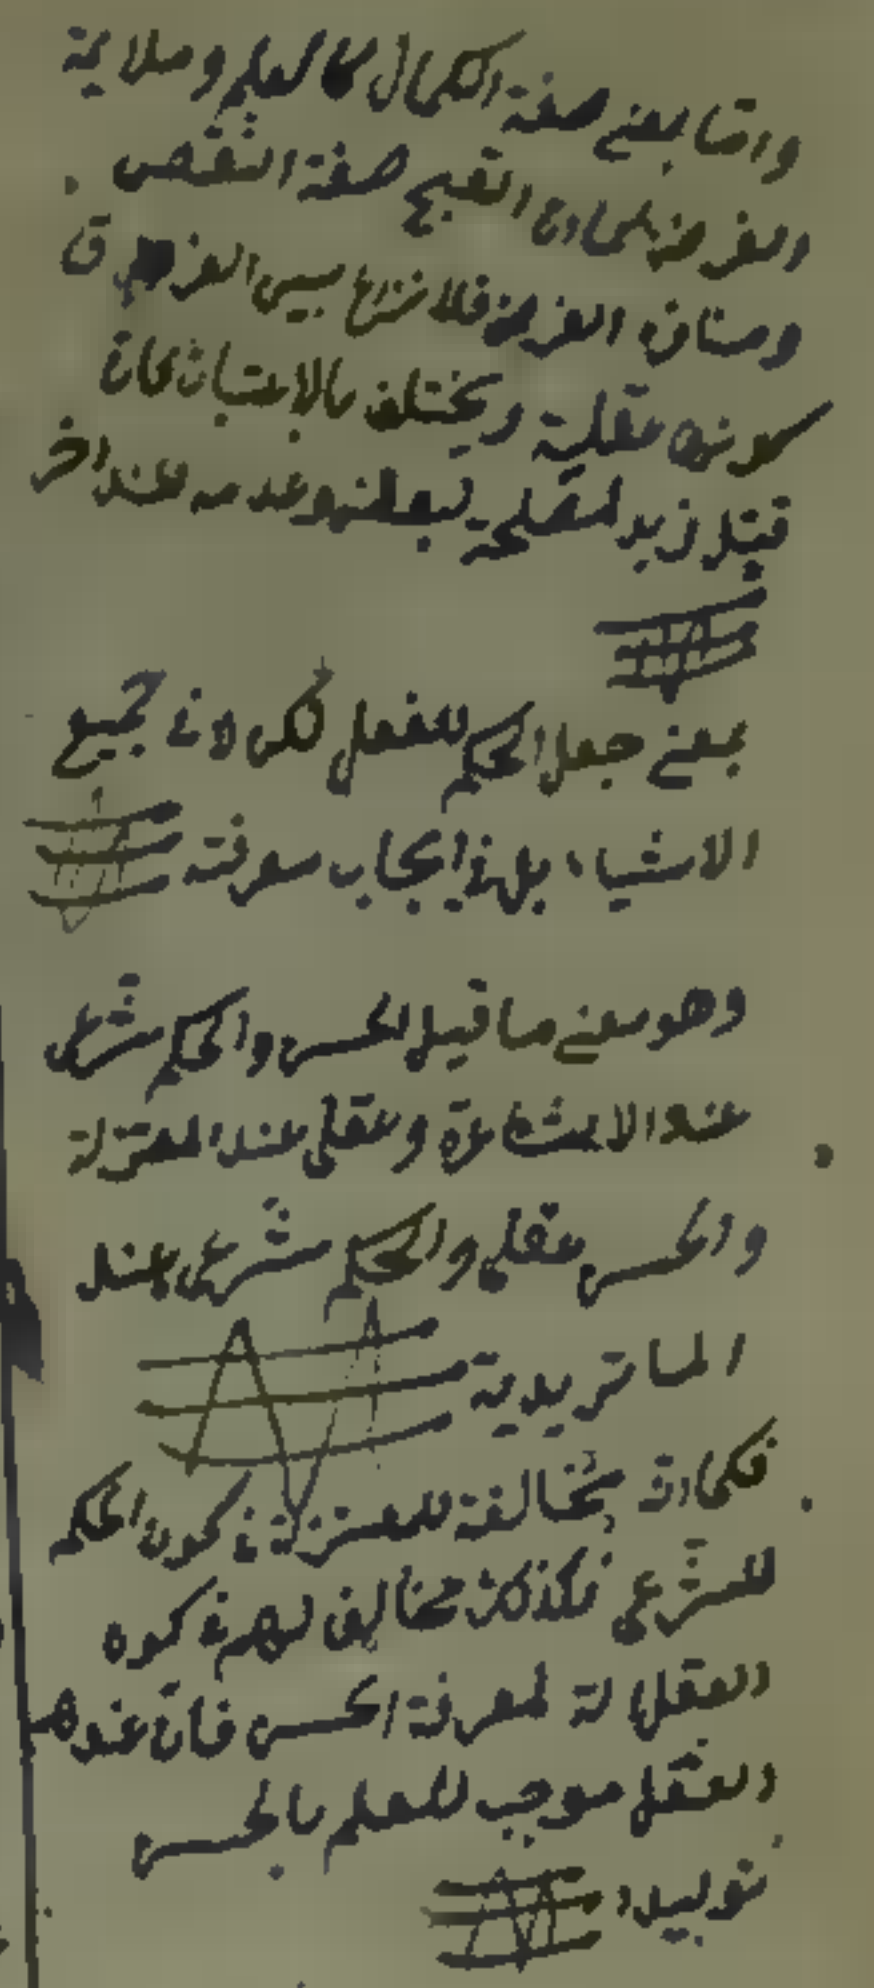 واما بمعنى صفة الكمال كالعلم وملايمة
الغرض كما ان القبح صفة النقص
ومنافرة الغرض فلا نزاع بين الفريق
كونه عقلية ويختلف بالاعتبار كان
قتل زيد لمصلحة لبعلمه وعدمه عند اخر
بمعنى جعل الحكم للفعل لكن لا في جميع
الاشياء بل في ايجاب معرفته
وهو معنى ما قيل الحسن والحكم شرعى
عند الاشاعرة وعقلى عند المعتزلة
والحسن عقلى والحكم شرعى عند
الماتريدية
فكما ان مخالفة للمعتزلة فى كون الحكم
للشرعى فكذلك مخالف لهم فى كون
العقل آلة لمعرفة الحسن فان عندهم
العقل موجب للعلم بالحسن
توليدا